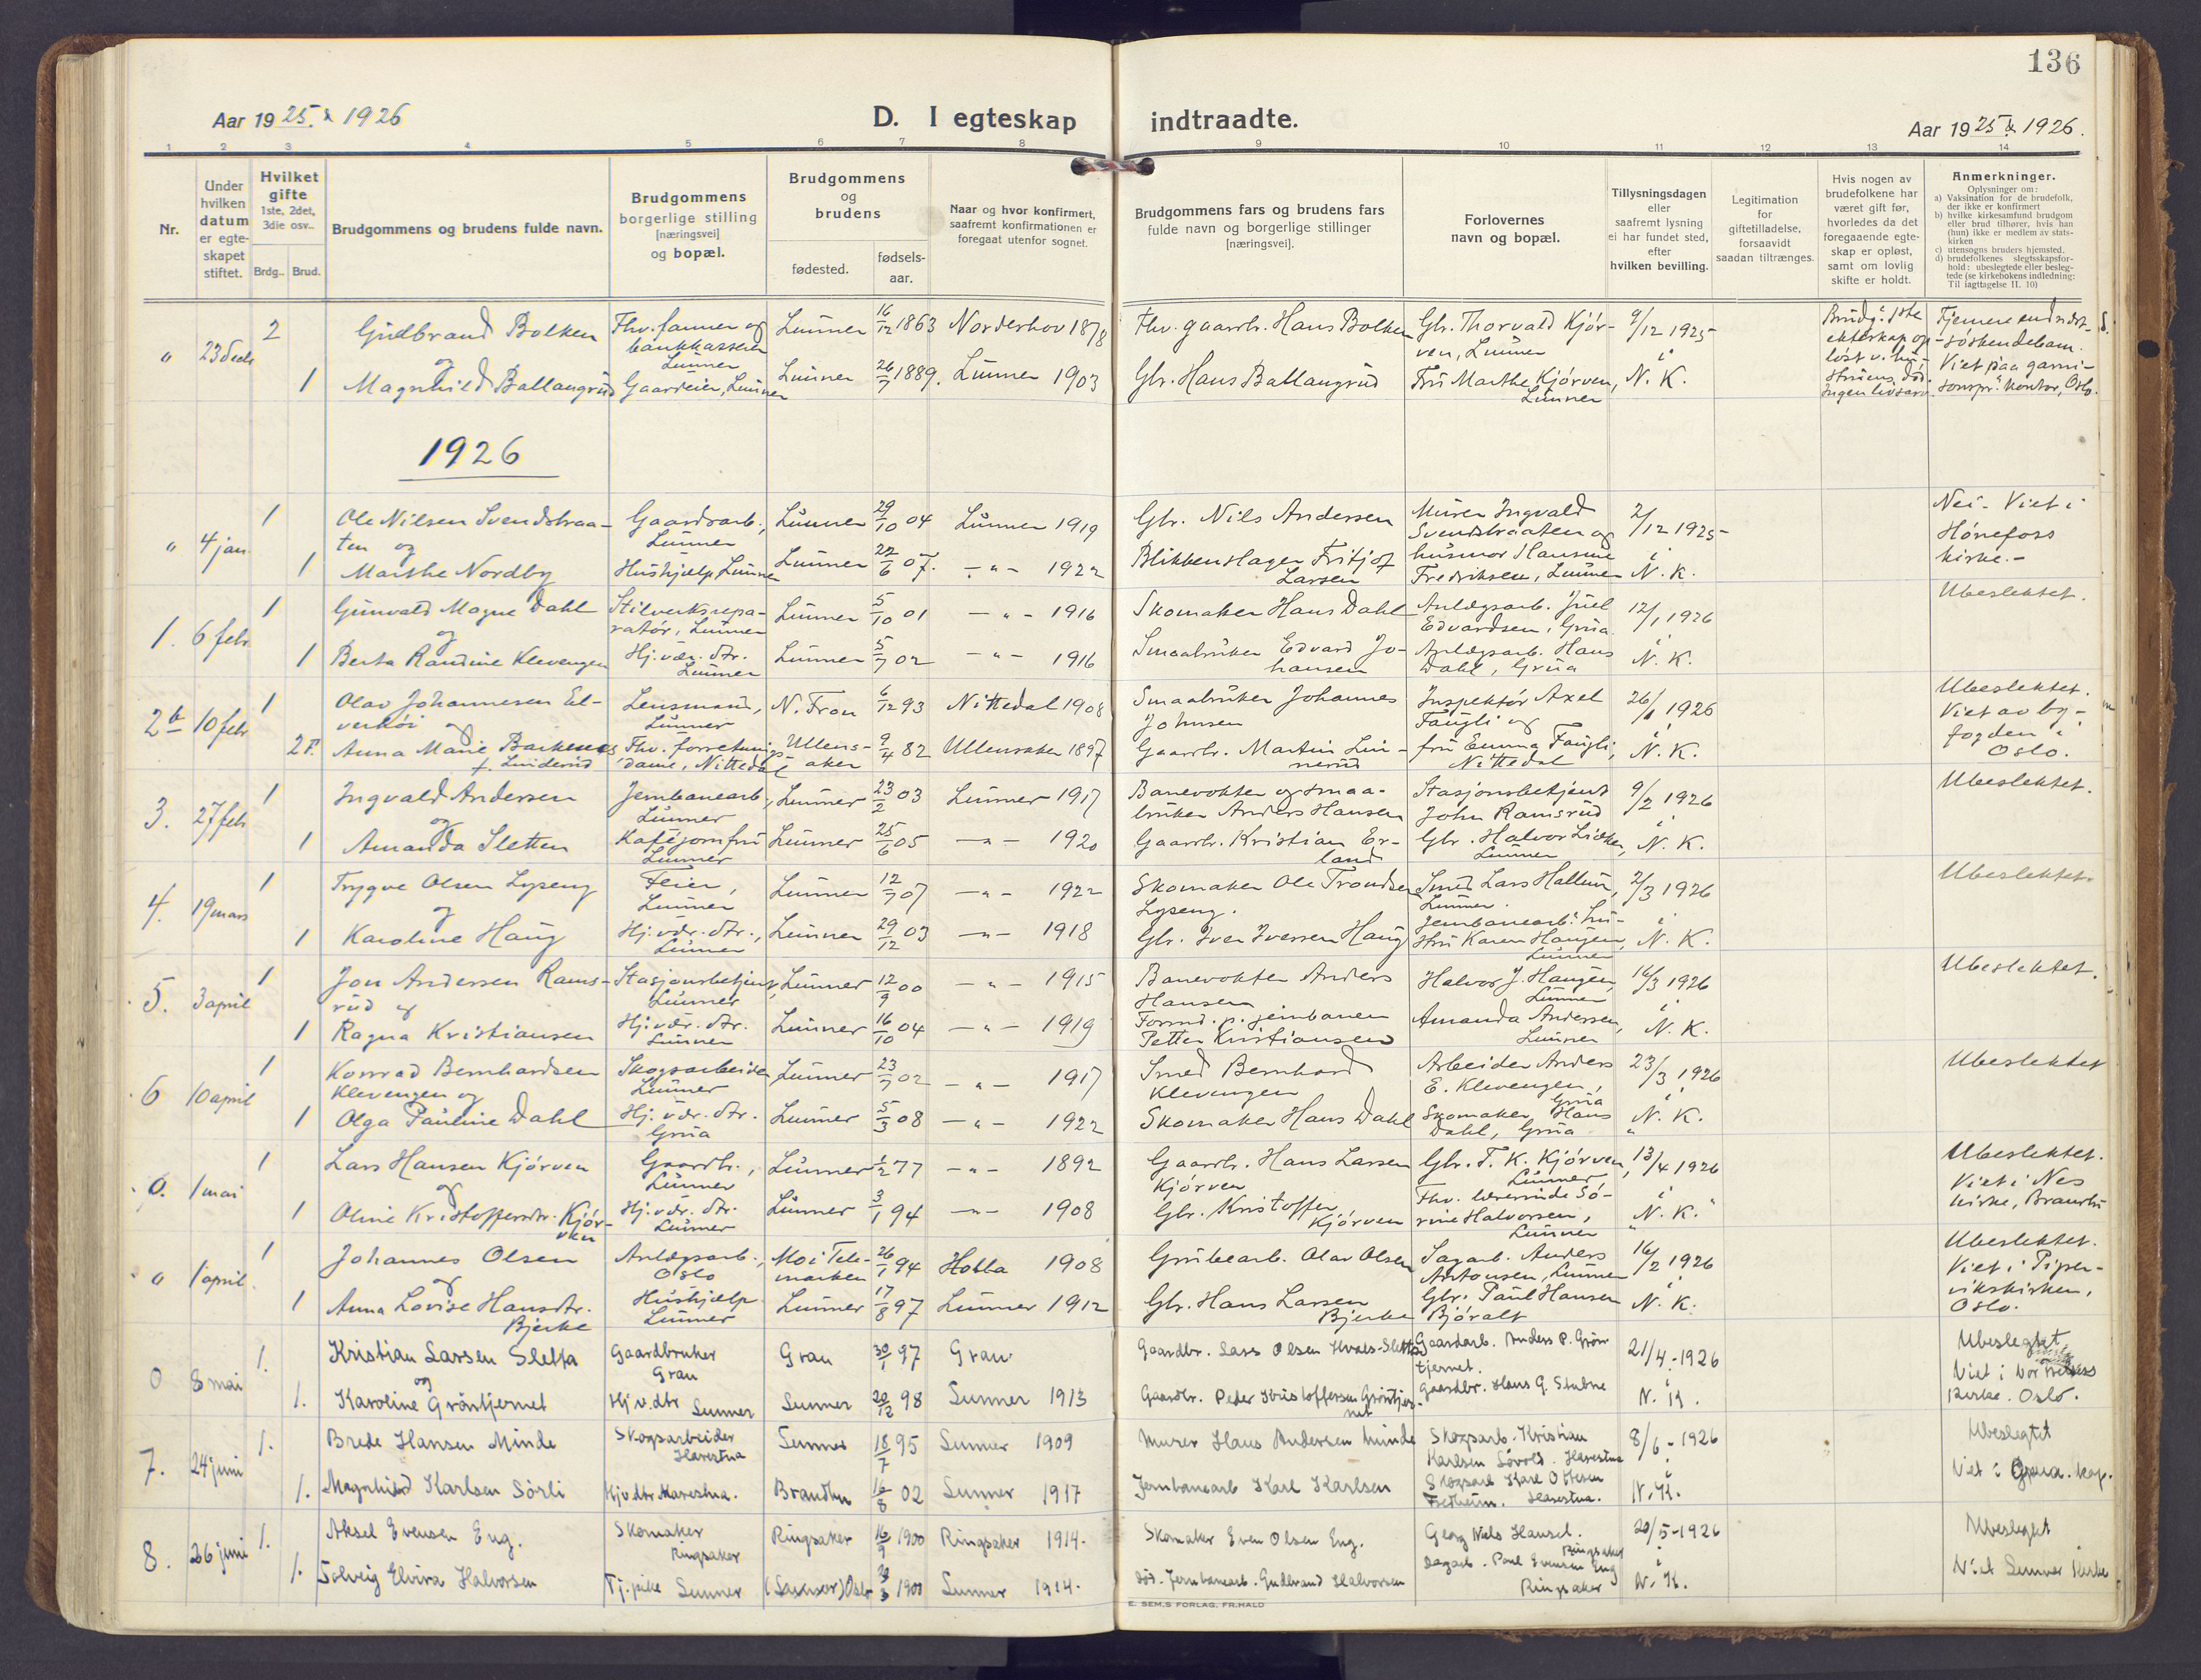 136
Aar 1925 & 1926
D. I egteskap indtraadte.
Aar 1925 & 1926.
1 2 3 4 5 6 7 8 9 10 11 12 13 14
Nr.
Under hvilken datum er egteskapet stiftet.
Hvilket gifte 1ste, 2det, 3die osv..
Brdg.. Brud.
Brudgommens og brudens fulde navn.
Brudgommens borgerlige stilling [næringsvei] og bopæl.
Brudgommens og brudens
fødested.
fødsels-aar.
Naar og hvor konfirmert, saafremt konfirmationen er foregaat utenfor sognet.
Brudgommens fars og brudens fars fulde navn og borgerlige stillinger [næringsvei].
Forlovernes navn og bopæl.
Tillysningsdagen eller saafremt lysning ei har fundet sted, efter hvilken bevilling.
Legitimation for giftetilladelse, forsaavidt saadan tiltrænges.
Hvis nogen av brudefolkene har været gift før, hvorledes da det foregaaende egteskap er opløst, samt om lovlig skifte er holdt.
Anmerkninger.
Oplysninger om:
a) Vaksination for de brudefolk, der ikke er konfirmert
b) hvilke kirkesamfund brudgom eller brud tilhører, hvis han (hun) ikke er medlem av statskirken
c) utensogns bruders hjemsted.
d) brudefolkenes slegtsskapsforhold: ubeslegtede eller beslegtede (se kirkebokens indledning: Til iagttagelse II. 10)
" 23 des 2 Gudbrand Bolken Fhv. farmer og bankkasserer Lunner Lunner 16/12 1863 Norderhov 1878 Fhv. gaardbr. Hans Bolken Gbr. Thorvald Kjørven, Lunner 9/12 1925 Brudg. 1ste ekteskap opløst v. hustruens død. Ingen livsarv.
og
1 Magnhild Ballangrud Gaardeier, Lunner Lunner 26/7 1889. Lunner 1903 Gbr. Hans Ballangrud Fru Marthe Kjørven, Lunner i N. K. Viet paa garnisonspr. kontor, Oslo.
1926
" 4 jan 1 Ole Nilsen Svendstraaten og Gaardsarb., Lunner Lunner 29/10 04 Lunner 1919 Gbr. Nils Andersen Murer Ingvald Svendstraaten og 2/12 1925 Nei. Viet i Hønefoss kirke.-
1 Marthe Nordby Hushjælp, Lunner Lunner 22/6 07. - " - 1922 Blikkenslager Fritjof Larsen husmor Hansine Fredriksen, Lunner i N. K.
1. 6 febr 1 Gunvald Magne Dahl Lunner Lunner 5/10 01 - " - 1916 Skomaker Hans Dahl Anlægsarb. Juel Edvardsen, Grua 12/1 1926 Ubeslektet.
og
1 Berta Randine Klevengen Hj. vær. dtr. Lunner Lunner 5/7 02 - " - 1916 Smaabruker Edvard Johansen Anlægsarb. Hans Dahl, Grua i N. K.
2 b 10 febr 1 Olav Johannesen Elverhøi Lensmand, Lunner N. Fron 6/12 93 Nittedal 1908 Smaabruker Johannes Johnsen Inspektør Axel Faugli og 26/1 1926 Ubeslektet. Viet av byfogden i Oslo.
og
2 F. Anna Marie Barkenes f. Linderud Fhv. forretningsdame, Nittedal Ullensaker 9/4 82 Ullensaker 1897 Gaardbr. Martin Linnerud fru Emma Faugli, Nittedal i N. K.
3. 27 febr 1 Ingvald Andersen Jernbanearb., Lunner Lunner 23/2 03 Lunner 1917 Banevokter og smaabruker Anders Hansen Stasjonsbetjent John Ramsrud 9/2 1926 Ubeslektet.
og
1 Amanda Sletten Kaféjomfru Lunner Lunner 25/6 05 - " - 1920 Gaardbr. Kristian Erland Gbr. Halvor Lidker, Lunner i N. K.
4. 19 mars 1 Trygve Olsen Lyseng Feier, Lunner Lunner 12/7 07 - " - 1922 Skomaker Ole Trondsen Lyseng. Smed Lars Hallum, Lunner. 2/3 1926 Ubeslektet.
og
1 Karoline Haug Hj. vær. dtr., Lunner Lunner 29/12 03 - " - 1918 Gbr. Iver Iversen Haug Jernbanearb. hustru Karen Haugen, Lunner i N. K.
5. 3 april 1 Jon Andersen Ramsrud og Stasjonsbetjent, Lunner Lunner 12/9 00 - " - 1915 Banevokter Anders Hansen Halvor J. Haugen, Lunner 16/3 1926 Ubeslektet.
1 Ragna Kristiansen Hj. vær. dtr. Lunner Lunner 16/10 04 - " - 1919 Formd. p. jernbanen Petter Kristiansen Amanda Andersen, Lunner i N. K.
6 10 april 1 Konrad Bernhardsen Klevengen og Skogsarbeider Lunner Lunner 23/7 02 - " - 1917 Smed Bernhard Klevengen Arbeider Anders E. Klevengen, Grua 23/3 1926 Ubeslektet
1 Olga Pauline Dahl Hj. vær. dtr. Grua Lunner 5/3 08 - " - 1922 Skomaker Hans Dahl Skomaker Hans Dahl, Grua i N. K.
0. 1 mai 1 Lars Hansen Kjørven Gaardbr., Lunner Lunner 1/2 77 - " - 1892 Gaardbr. Hans Larsen Kjørven Gbr. T. K. Kjørven, Lunner 13/4 1926 Ubeslektet. Viet i Nes kirke, Brandbu
og
1 Oline Kristoffersdtr. Kjørven Hj. vær. dtr. Lunner Lunner 3/1 94 - " - 1908 Gbr. Kristoffer Kjørven Fhv. lærerinde Sørine Halvorsen, Lunner i N. K.
" 1 april 1 Johannes Olsen Anlægsarb., Oslo Mo i Telemarken 26/1 94 Holla 1908 Grubearb. Olav Olsen Sagarb. Anders Antonsen, Lunner 16/2 1926 Ubeslektet. Viet i Pipervikskirken, Oslo.
og
1 Anna Lovise Hansdtr. Bjerke Hushjælp Lunner Lunner 17/8 97 Lunner 1912 Gbr. Hans Larsen Bjerke Gbr. Paul Hansen Bjøralt i N. K.
0 8 mai 1. Kristian Larsen Sletta Gaardbruker Gran Gran 30/1 97 Gran Gaardbr. Lars Olsen Hvals-Sletta Gaardarb. Anders P. Grøntjernet. 21/4 - 1926 Ubeslegtet Viet i Vor Frelsers Kirke. Oslo.
og
1. Karoline Grøntjernet Hj v. dtr Lunner Lunner 20/12 98 Lunner 1913 Gaardbr. Peder Kristoffersen Grøntjernet gaardbr. Hans G. Stubne i N. K.
7. 24 juni 1. Brede Hansen Minde Skogsarbeider Harestua Lunner 18/7 95 Lunner 1909 Murer Hans Andersen Minde Skogsarb. Kristian Karlsen Søvold. Harestua 8/6 - 1926 Ubeslegtet Viet i Grua. kap.
1. Magnhild Karlsen Sørli Hjv dtr Harestua. Brandbu 16/8 02 Lunner 1917 Jernbanearb Karl Karlsen Skogsarb Karl Ottesen Fredheim. Harestua. i N. K.
8. 26 juni 1. Aksel Evensen Eng. Skomaker Ringsaker Ringsaker 16/9 1900 Ringsaker 1914. Skomaker Even Olsen Eng. Georg Niels Hansel. Ringsaker 20/5 - 1926 Ubeslegtet Viet Lunner Kirke
1. Solveig Elvira Halvorsen Tj. pike Lunner (Lunner) Oslo 1900 Lunner 1914. død. Jernbanearb. Gudbrand Halvorsen Dagarb. Paul Evensen Eng Ringsaker i N. K.
E. SEM,S FORLAG, FR.HALD